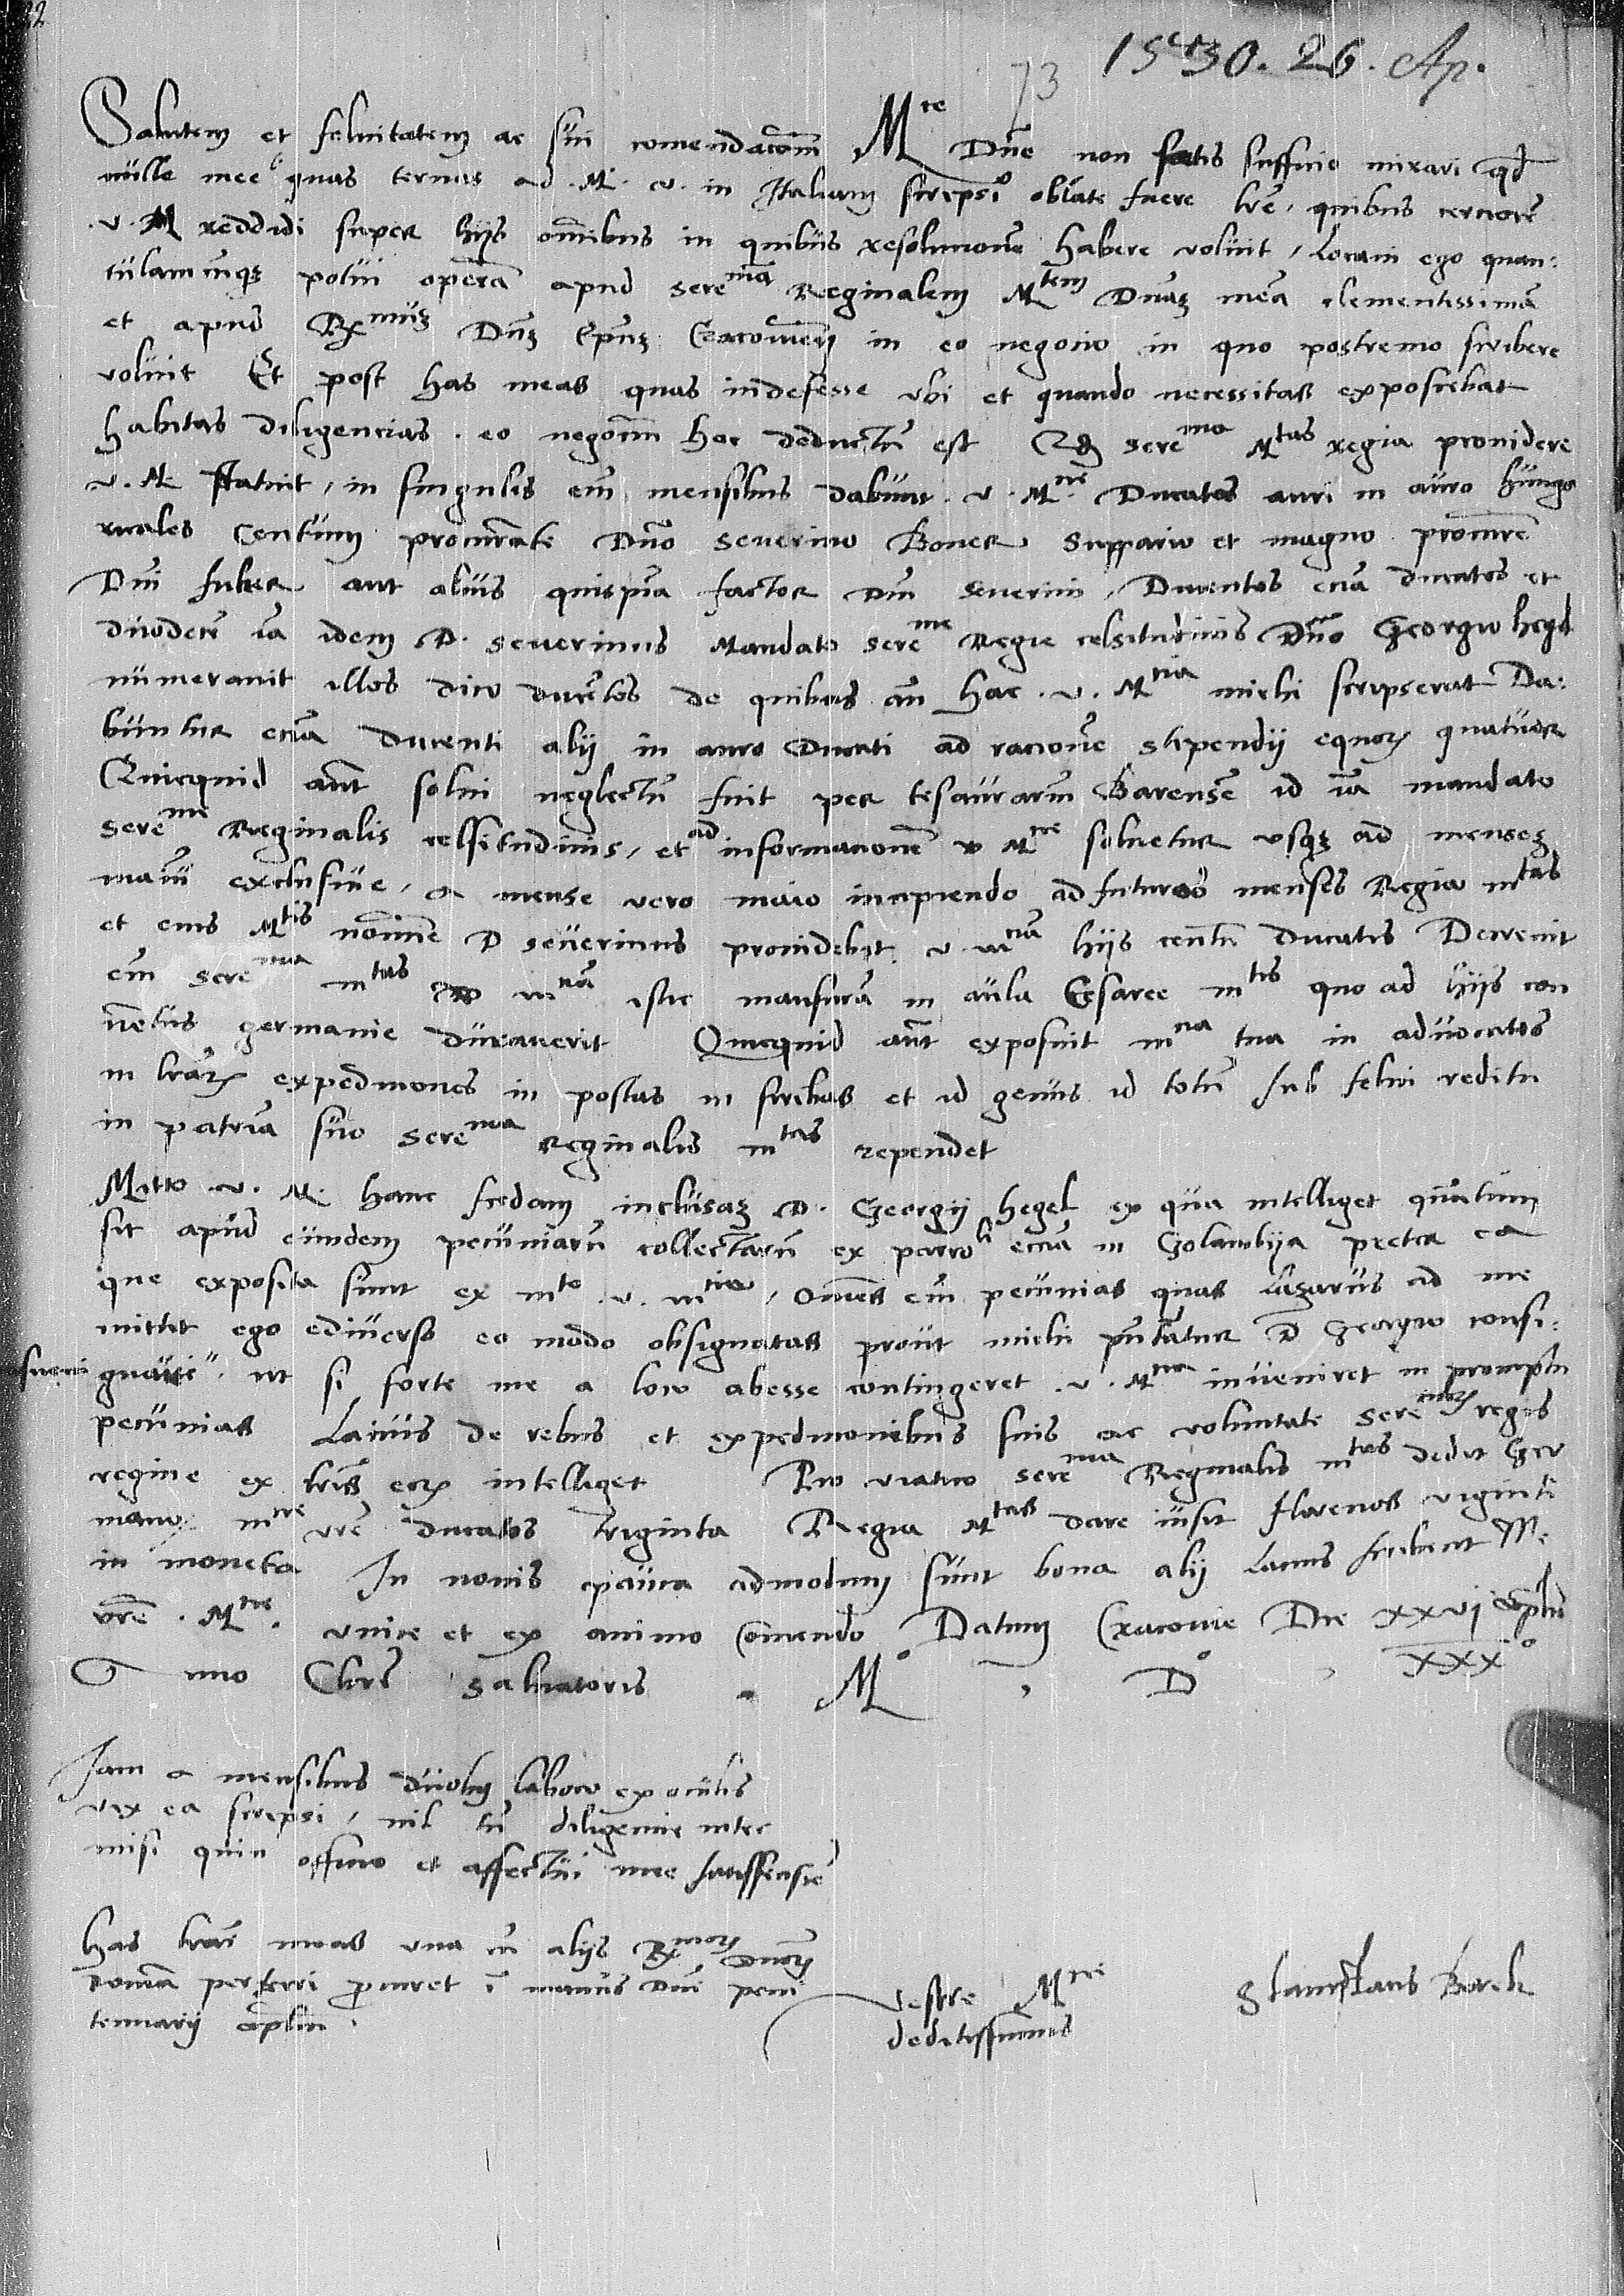 22
73
1530. 26. Ap.
Salutem et felicitatem ac sui comendacom M^ce Dne non satis sufficio mirari qd
nulle mee quas ternas ad .M. v. in Italiam scripsi oblate fuere lre, quibus cerciore
.v. M reddidi super hijs omibus in quibus resolucione habere voluit, Locavi ego quan:
tulamcunqz potui opera apud sere^ma Reginalem M^tem Dnaz mea clementissima
et apud R^muz Dnz Epuz Cracovien in eo negocio in quo postremo scribere
voluit Et post has meas quas indefesse vbi et quando necessitas exposcebat
habitas diligencias . eo negocm hoc deductu est Qd sere^ma M^tas regia providere
v. M. statuit, in singulis em mensibus dabunt . v . M^ne Ducatos auri in auro hunga
ricales Centum procurate Dno Severino Boner Suppario et magno procure
Dni fuker aut alius quispia factor Dni Severini, Ducentos ecia ducatos et
duodeci ia idem D. Severinus Mandato sere^me Regie celsitudinis Dno Georgio hegel
numeravit illos dico ducetos de quibus an hac . v . M^cia michi scripserat Da:
buntur ecia Ducenti alij in auro Ducati ad racione stipendij equorz quatuor
Quicquid aut solvi neglectu fuit per tesaurariu Barense id ia mandato
Sere^me Reginalis celsitudinis, et ad informacione v M^ce solvetur vsqz ad mensez
maiu exclusive, a mense vero maio incipiendo ad futuros menses Regia m^tas
et eius M^tis noie D Severinus providebit . v . m^cia hijs centu ducatis Decrevit
em sere^ma m^tas m^cia istic mansura in aula Cesaree m^tis quo ad hijs con
vetus germanie duraverit Quicquid aut exposuit m^cia tua in advocatos
in lrarz expediciones in postas in scribas et id genus id totu sub felici reditu
in patria suo sere^ma Reginalis m^tas rependet
Mitto . v . M. hanc scedam inclusaz D. Georgij hegel ex qua intelliget quatum
sit apud eundem pecuniaru collectaru ex ecia in Golambya preter ea
que exposita sunt ex m^to . v . m^cie, omes em pecunias quas Lazarus ad me
mittet ego ediverso eo modo obsignatas prout michi putatur D Georgio consi:
gnare suevi, ut si forte me a loco abesse contingeret . v . M^cia inveniret in promptu
pecunias Lacius de rebus et expedicionibus suis ac voluntate Sere^morz regis
regine ex lris eorz intelliget Pro viatico Sere^ma Reginalis m^tas dedit Ger
mano m^ce vre ducatos triginta Regia M^tas dare iusit florenos viginti
in moneta In novis pauca admodum sunt bona alij Lacius scribent M.
vre . M^cie. vnice et ex animo Comendo Datum Cracovie Die xxvj Aplis
Anno Christi Salvatoris . M° , D° , xxx°
Jam a mensibus duobus laboro ex oculis
vix ea scripsi, nil tn diligencie inter
misi quin officio et affectui meo
Has lras meas vna cu alijs R^morz Dnorz
Roma perferri procuret i manus Dni peni
tenciarij
Vestre M^cie
deditissimus
Stanislaus Borek